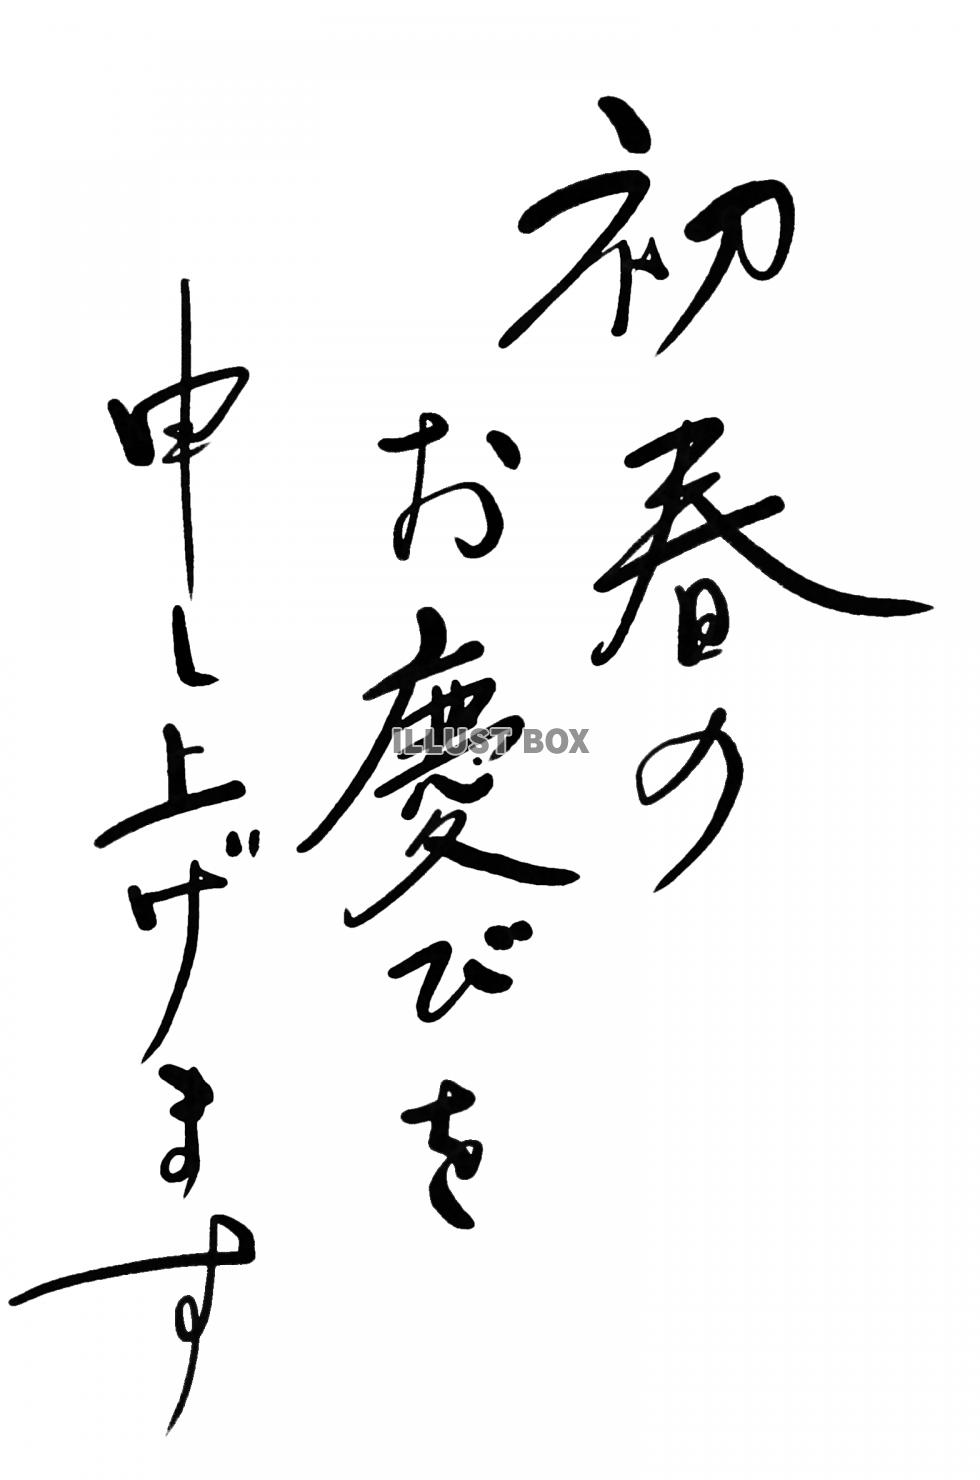 初春の
お慶びを
申し上げます
ILLUST BOX